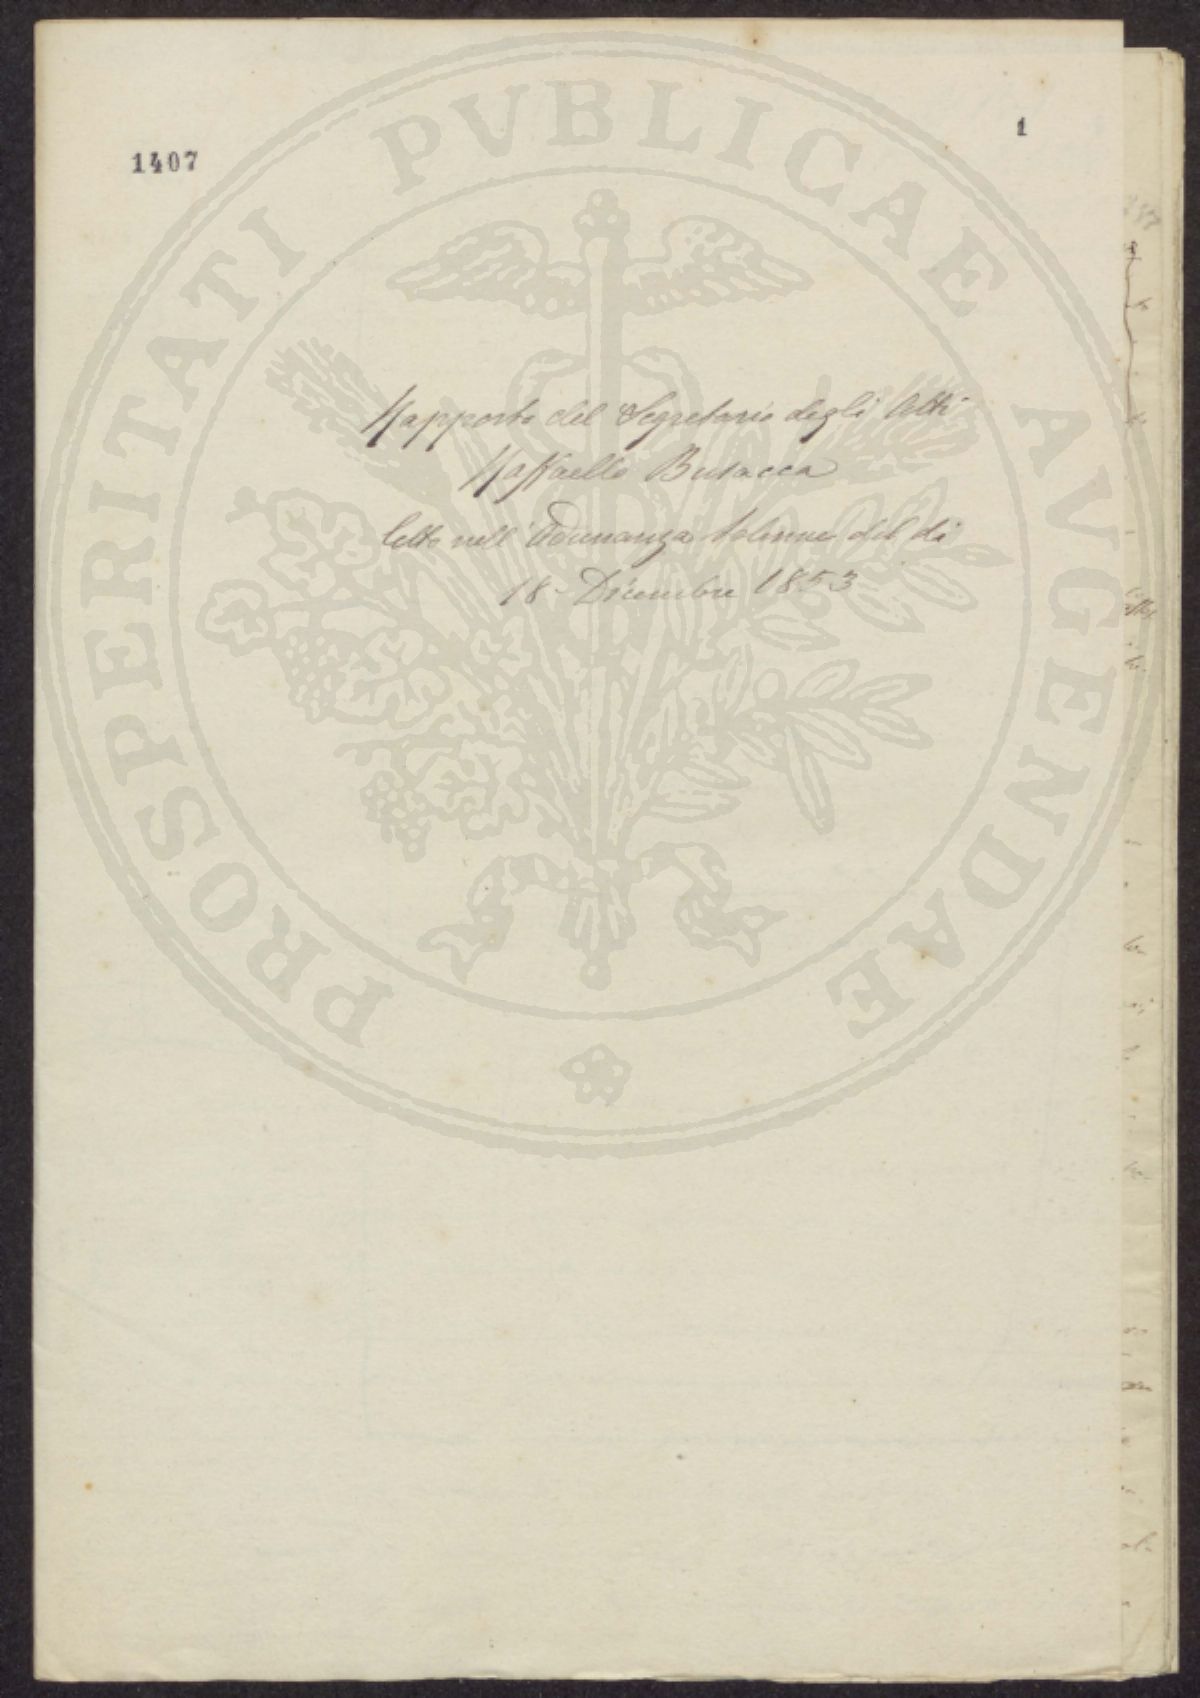 1407
1
PROSPERITATI PVBLICAE AVGENDAE
Rapporto del Segretario degli Atti
Raffaello Busacca
letto nell'Adunanza Solenne del dì
18. Dicembre 1853